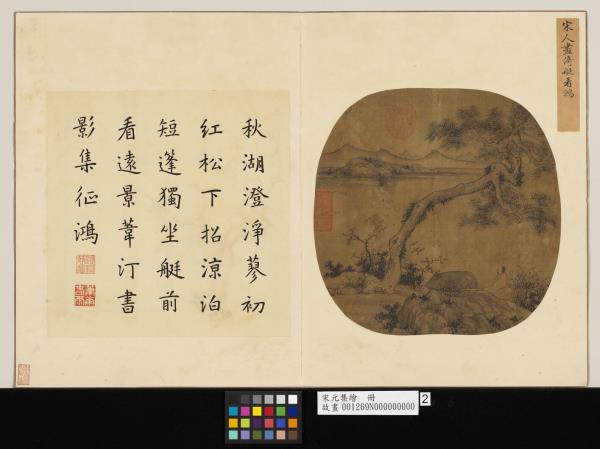 宋人畫停艇看鴻
秋湖澄淨蓼初
紅松下招涼泊
短蓬獨坐艇前
看遠景葦汀書
影集征鴻
宋元集繪 冊
故畫 001269N000000000
2